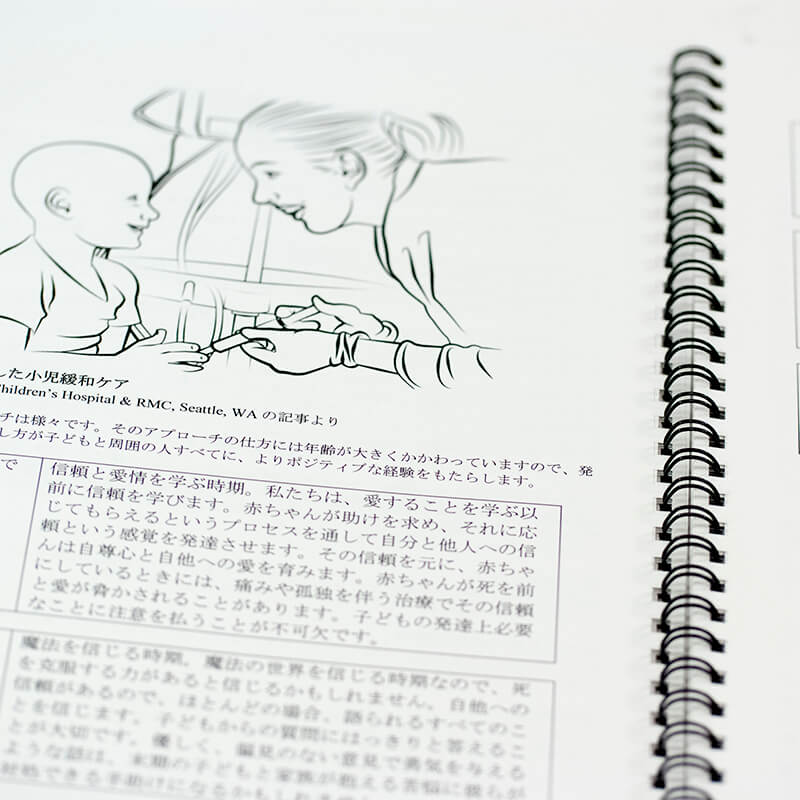 した小児緩和ケア
Children's Hospital & RMC, Seattle, WA の記事より
チは様々です。そのアプローチの仕方には年齢が大きくかかわっていますので、発
し方が子どもと周囲の人すべてに、よりポジティブな経験をもたらします。
で
信頼と愛情を学ぶ時期。私たちは、愛することを学ぶ以
前に信頼を学びます。赤ちゃんが助けを求め、それに応
じてもらえるというプロセスを通して自分と他人への信
頼という感覚を発達させます。その信頼を元に、赤ちゃ
んは自尊心と自他への愛を育みます。赤ちゃんが死を前
にしているときには、痛みや孤独を伴う治療でその信頼
と愛が脅かされることがあります。子どもの発達上必要
なことに注意を払うことが不可欠です。
魔法を信じる時期。魔法の世界を信じる時期なので、死
を克服する力があると信じるかもしれません。自他への
信頼があるので、ほとんどの場合、語られるすべてのこ
とを信じます。子どもからの質問にはっきりと答えるこ
とが大切です。優しく、偏見のない意見で勇気を与える
ような話は、末期の子どもと家族が抱える苦悩に彼らが
対処できる手助けになるかもしれま